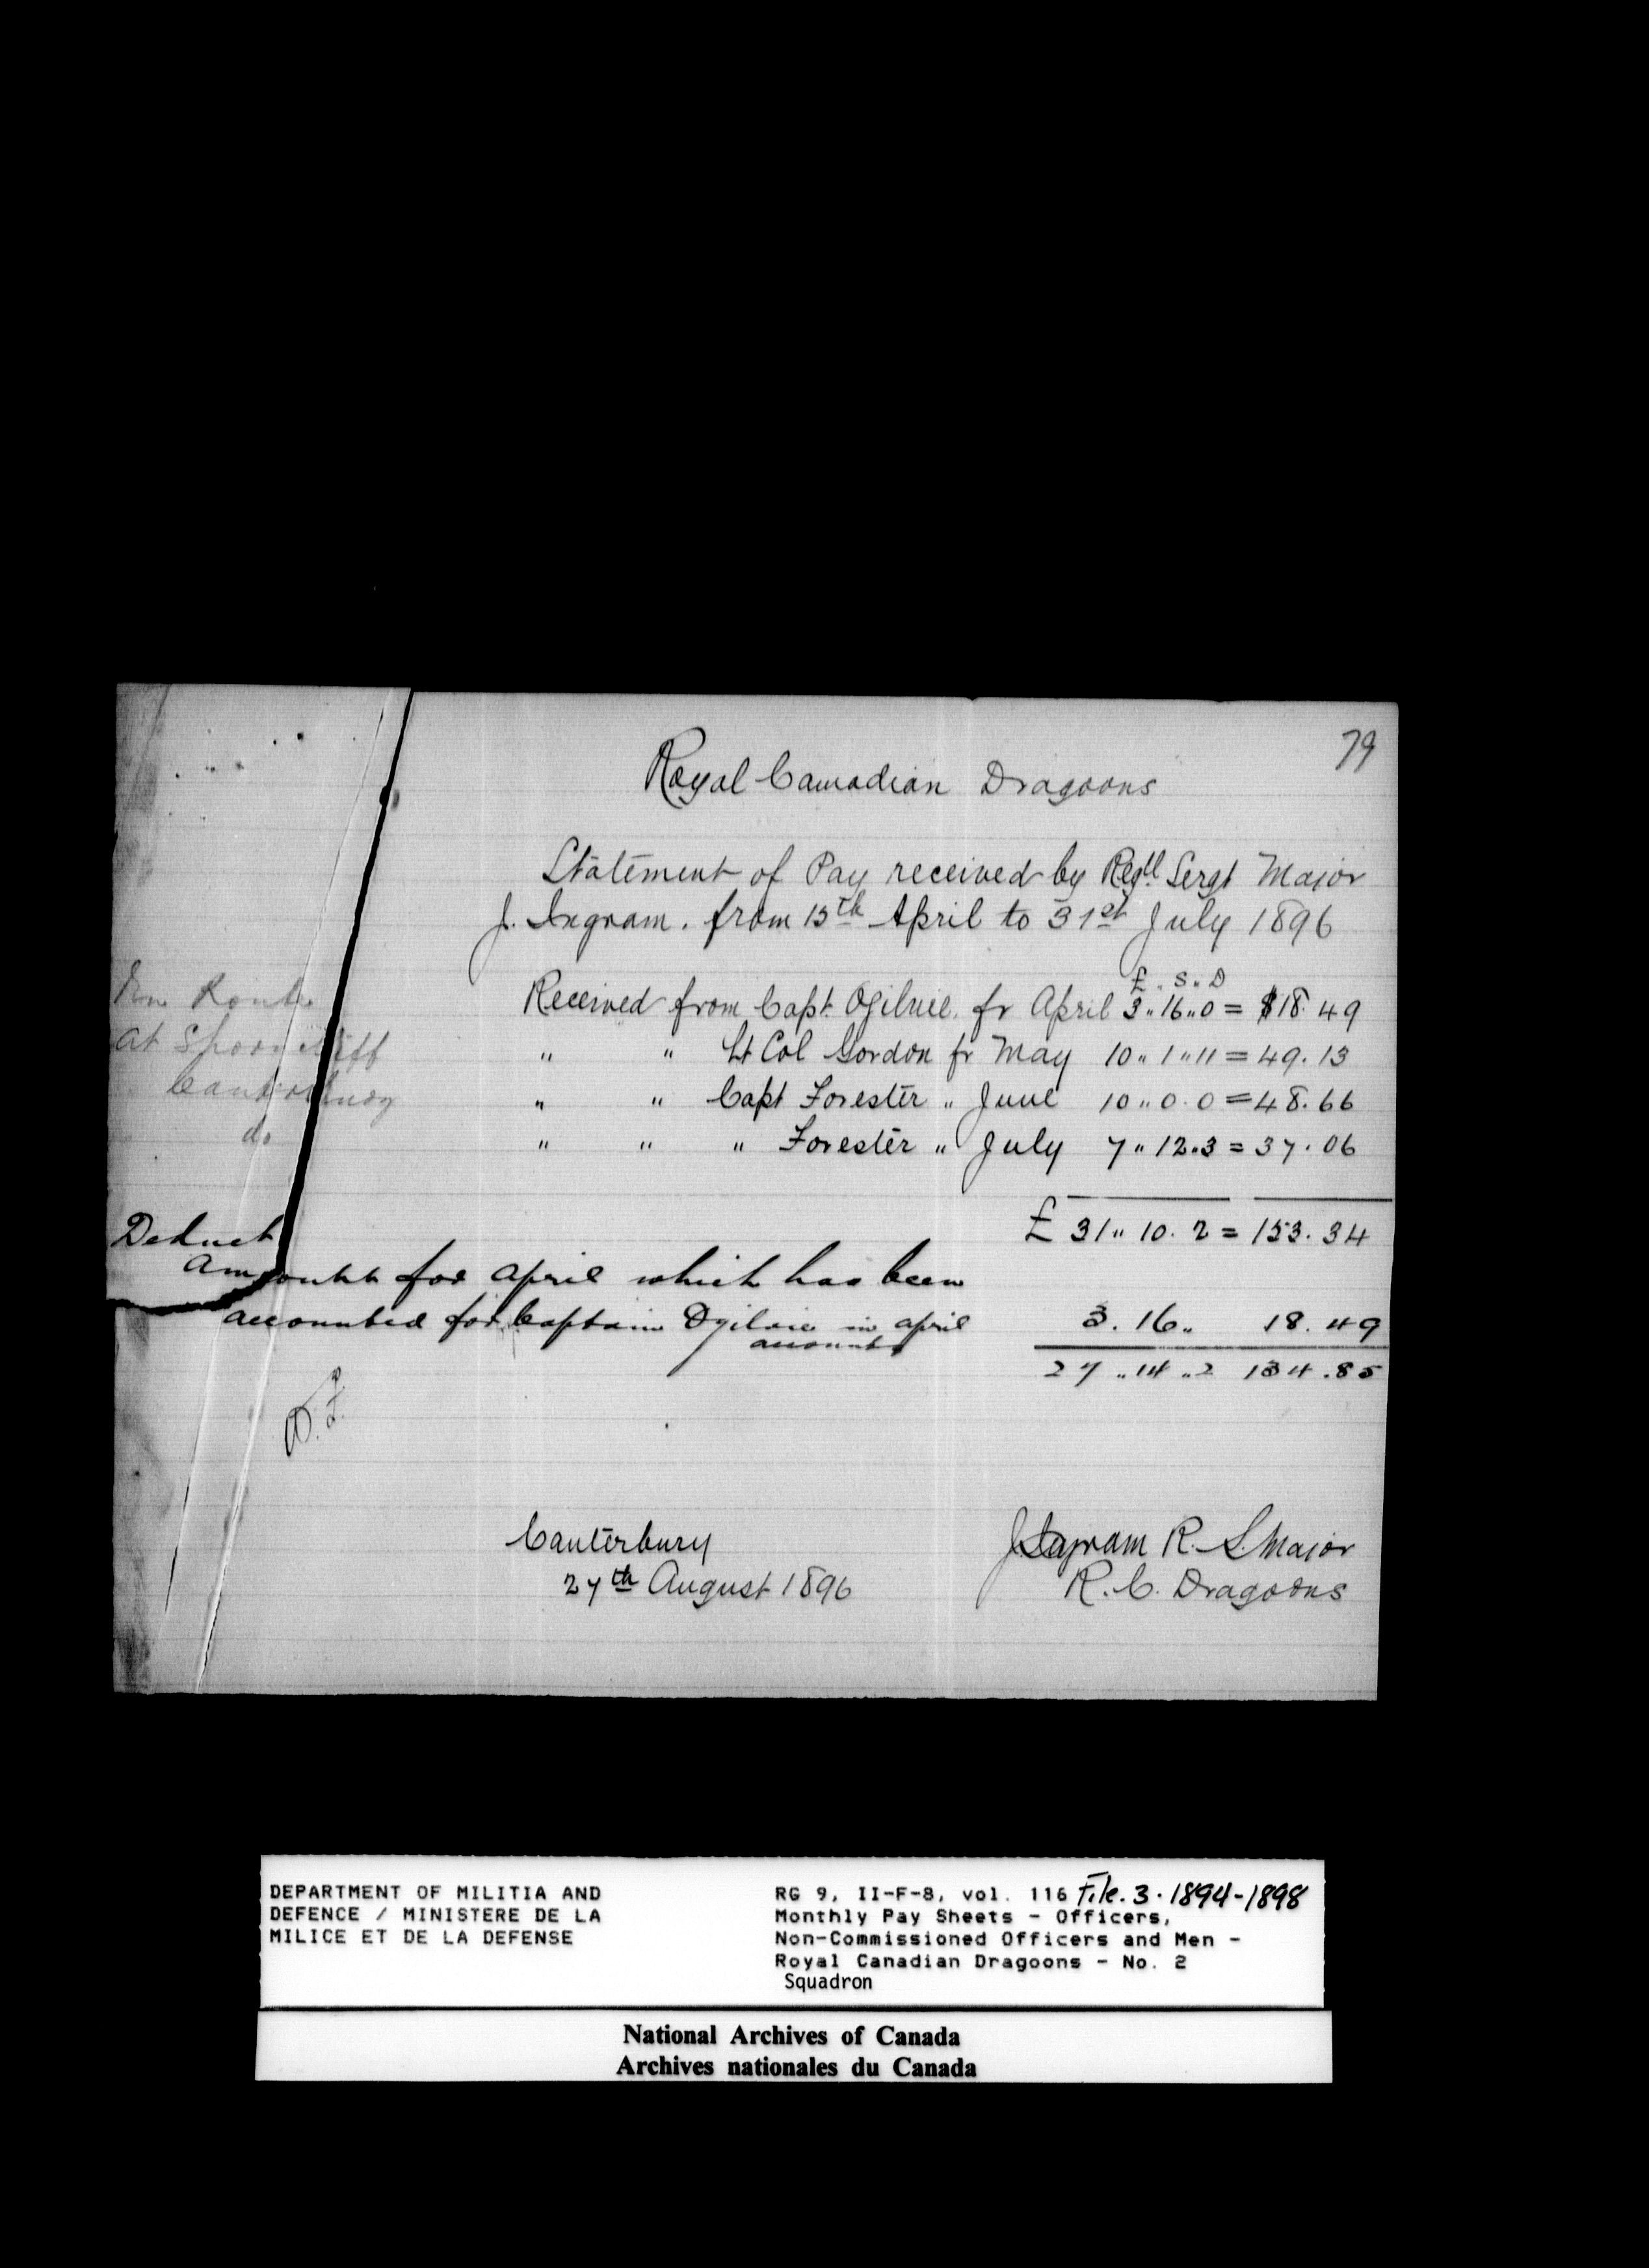 79
Royal Canadian Dragoons
Statement of Pay received by Regtl Sergt Major
J. Ingram. from 15th April to 31st July 1896
£ . S .. D
En Route Received from Capt. Ogilvie. fr April 3 .. 16 .. 0 = $18.49
at Shorncliff " " Lt Col Gordon fr May 10 .. 1 .. 11 = 49.13
Canterbury " " Capt Forester " June 10 .. 0 . 0 = 48.66
do " " " Forester " July 7 .. 12 . 3 = 37.06
£ 31 .. 10 . 2 = 153.34
Deduct
amount for april which has been
accounted for Captain Ogilvie in april 3 . 16 .. 18.49
accounts
27 .. 14 .. 2 134.85
Canterbury
27th August 1896
J Ingram R. S. Major
R. C. Dragoons
DEPARTMENT OF MILITIA AND
DEFENCE / MINISTERE DE LA
MILICE ET DE LA DEFENSE
RG 9, II-F-8, vol. 116 File. 3 . 1894-1898
Monthly Pay Sheets - Officers,
Non-Commissioned Officers and Men -
Royal Canadian Dragoons - No. 2
Squadron
National Archives of Canada
Archives nationales du Canada